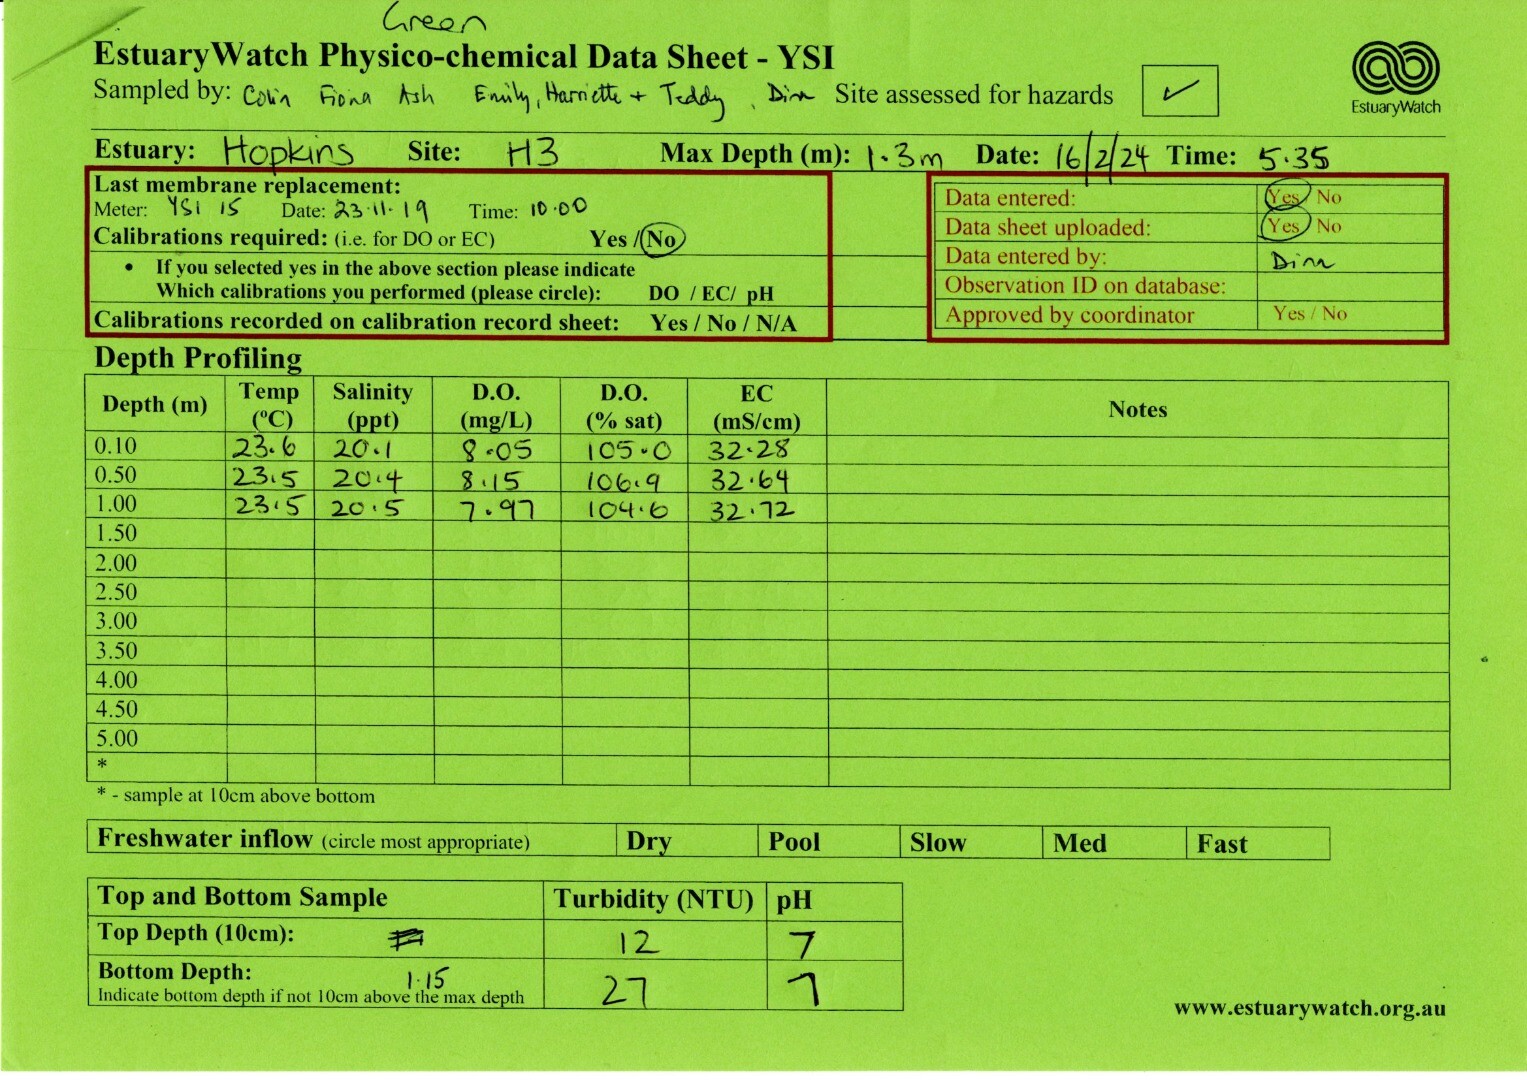 Green
EstuaryWatch Physico-chemical Data Sheet - YSI
Sampled by: Colin Fiona Ash Emily, Harriette + Teddy, Dinn Site assessed for hazards ✓
EstuaryWatch
Estuary: Hopkins Site: H3 Max Depth (m): 1.3m Date: 16/2/24 Time: 5.35
Last membrane replacement:
Meter: YSI 15 Date: 23.11.19 Time: 10.00
Calibrations required: (i.e. for DO or EC) Yes / No
• If you selected yes in the above section please indicate
Which calibrations you performed (please circle): DO / EC/ pH
Calibrations recorded on calibration record sheet: Yes / No / N/A
Data entered: Yes / No
Data sheet uploaded: Yes / No
Data entered by: Dinn
Observation ID on database:
Approved by coordinator Yes / No
Depth Profiling
Depth (m) Temp (ºC) Salinity (ppt) D.O. (mg/L) D.O. (% sat) EC (mS/cm) Notes
0.10 23.6 20.1 8.05 105.0 32.28
0.50 23.5 20.4 8.15 106.9 32.64
1.00 23.5 20.5 7.97 104.6 32.72
1.50
2.00
2.50
3.00
3.50
4.00
4.50
5.00
*
* - sample at 10cm above bottom
Freshwater inflow (circle most appropriate) Dry Pool Slow Med Fast
Top and Bottom Sample Turbidity (NTU) pH
Top Depth (10cm): 12 7
Bottom Depth: 1.15 27 7
Indicate bottom depth if not 10cm above the max depth
www.estuarywatch.org.au